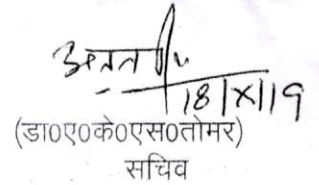 18/X/19
(डा0ए0के0एस0तोमर)
सचिव